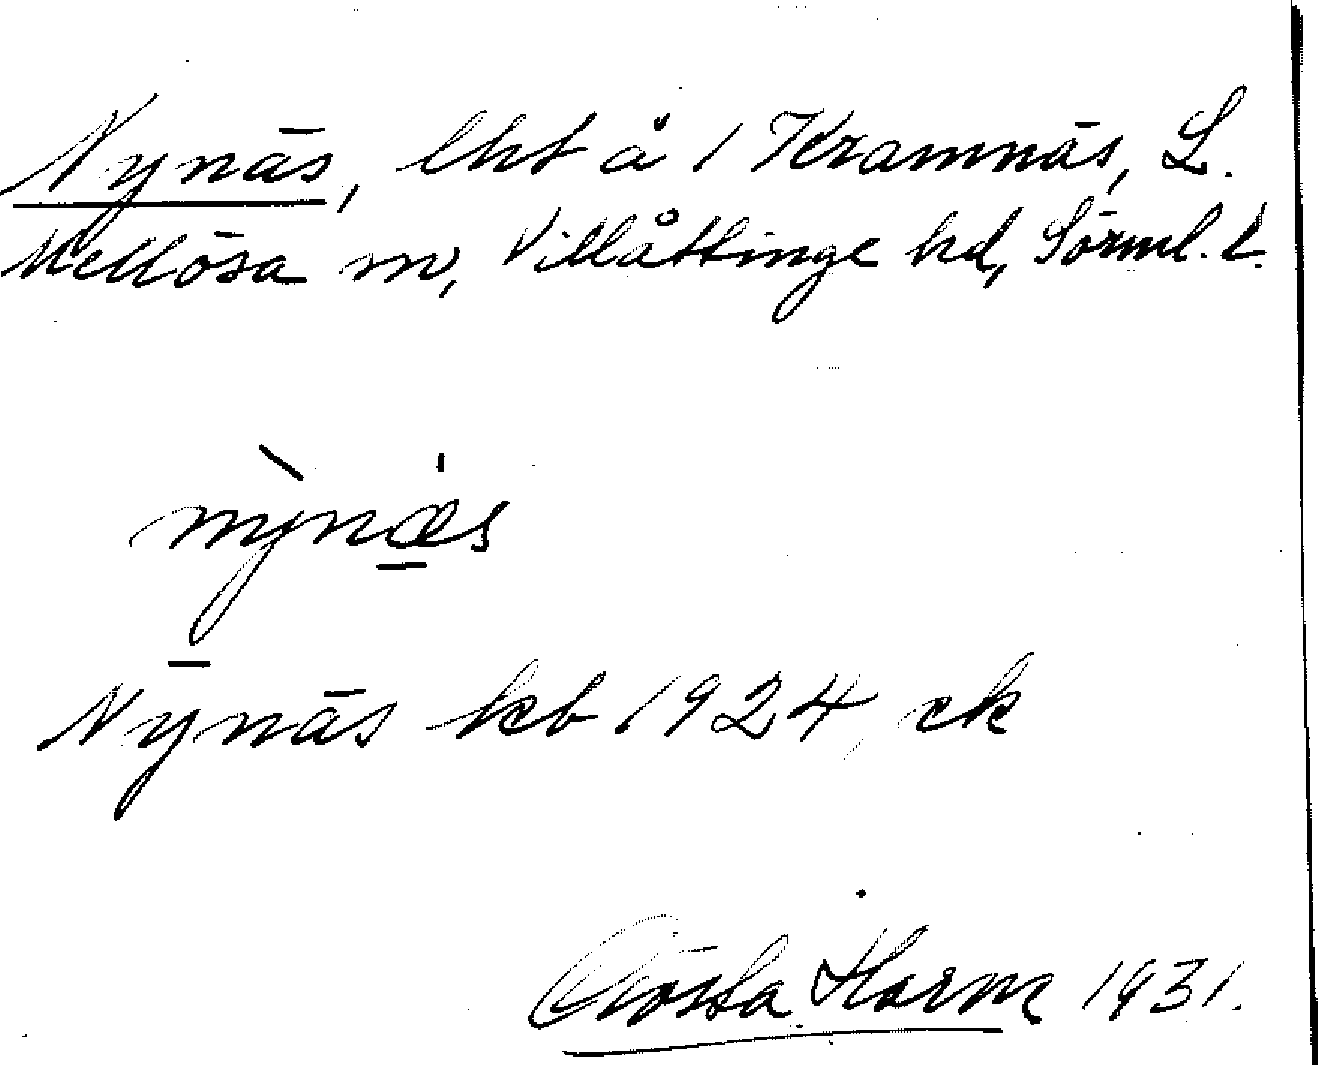 Nynäs, lht å 1 Kramnäs, L.
Mellösa sn, Villåttinge hd, Sörml. l.
nỳnæ̠s
Nynäs kb 1924, ek
Gösta Harm 1931.